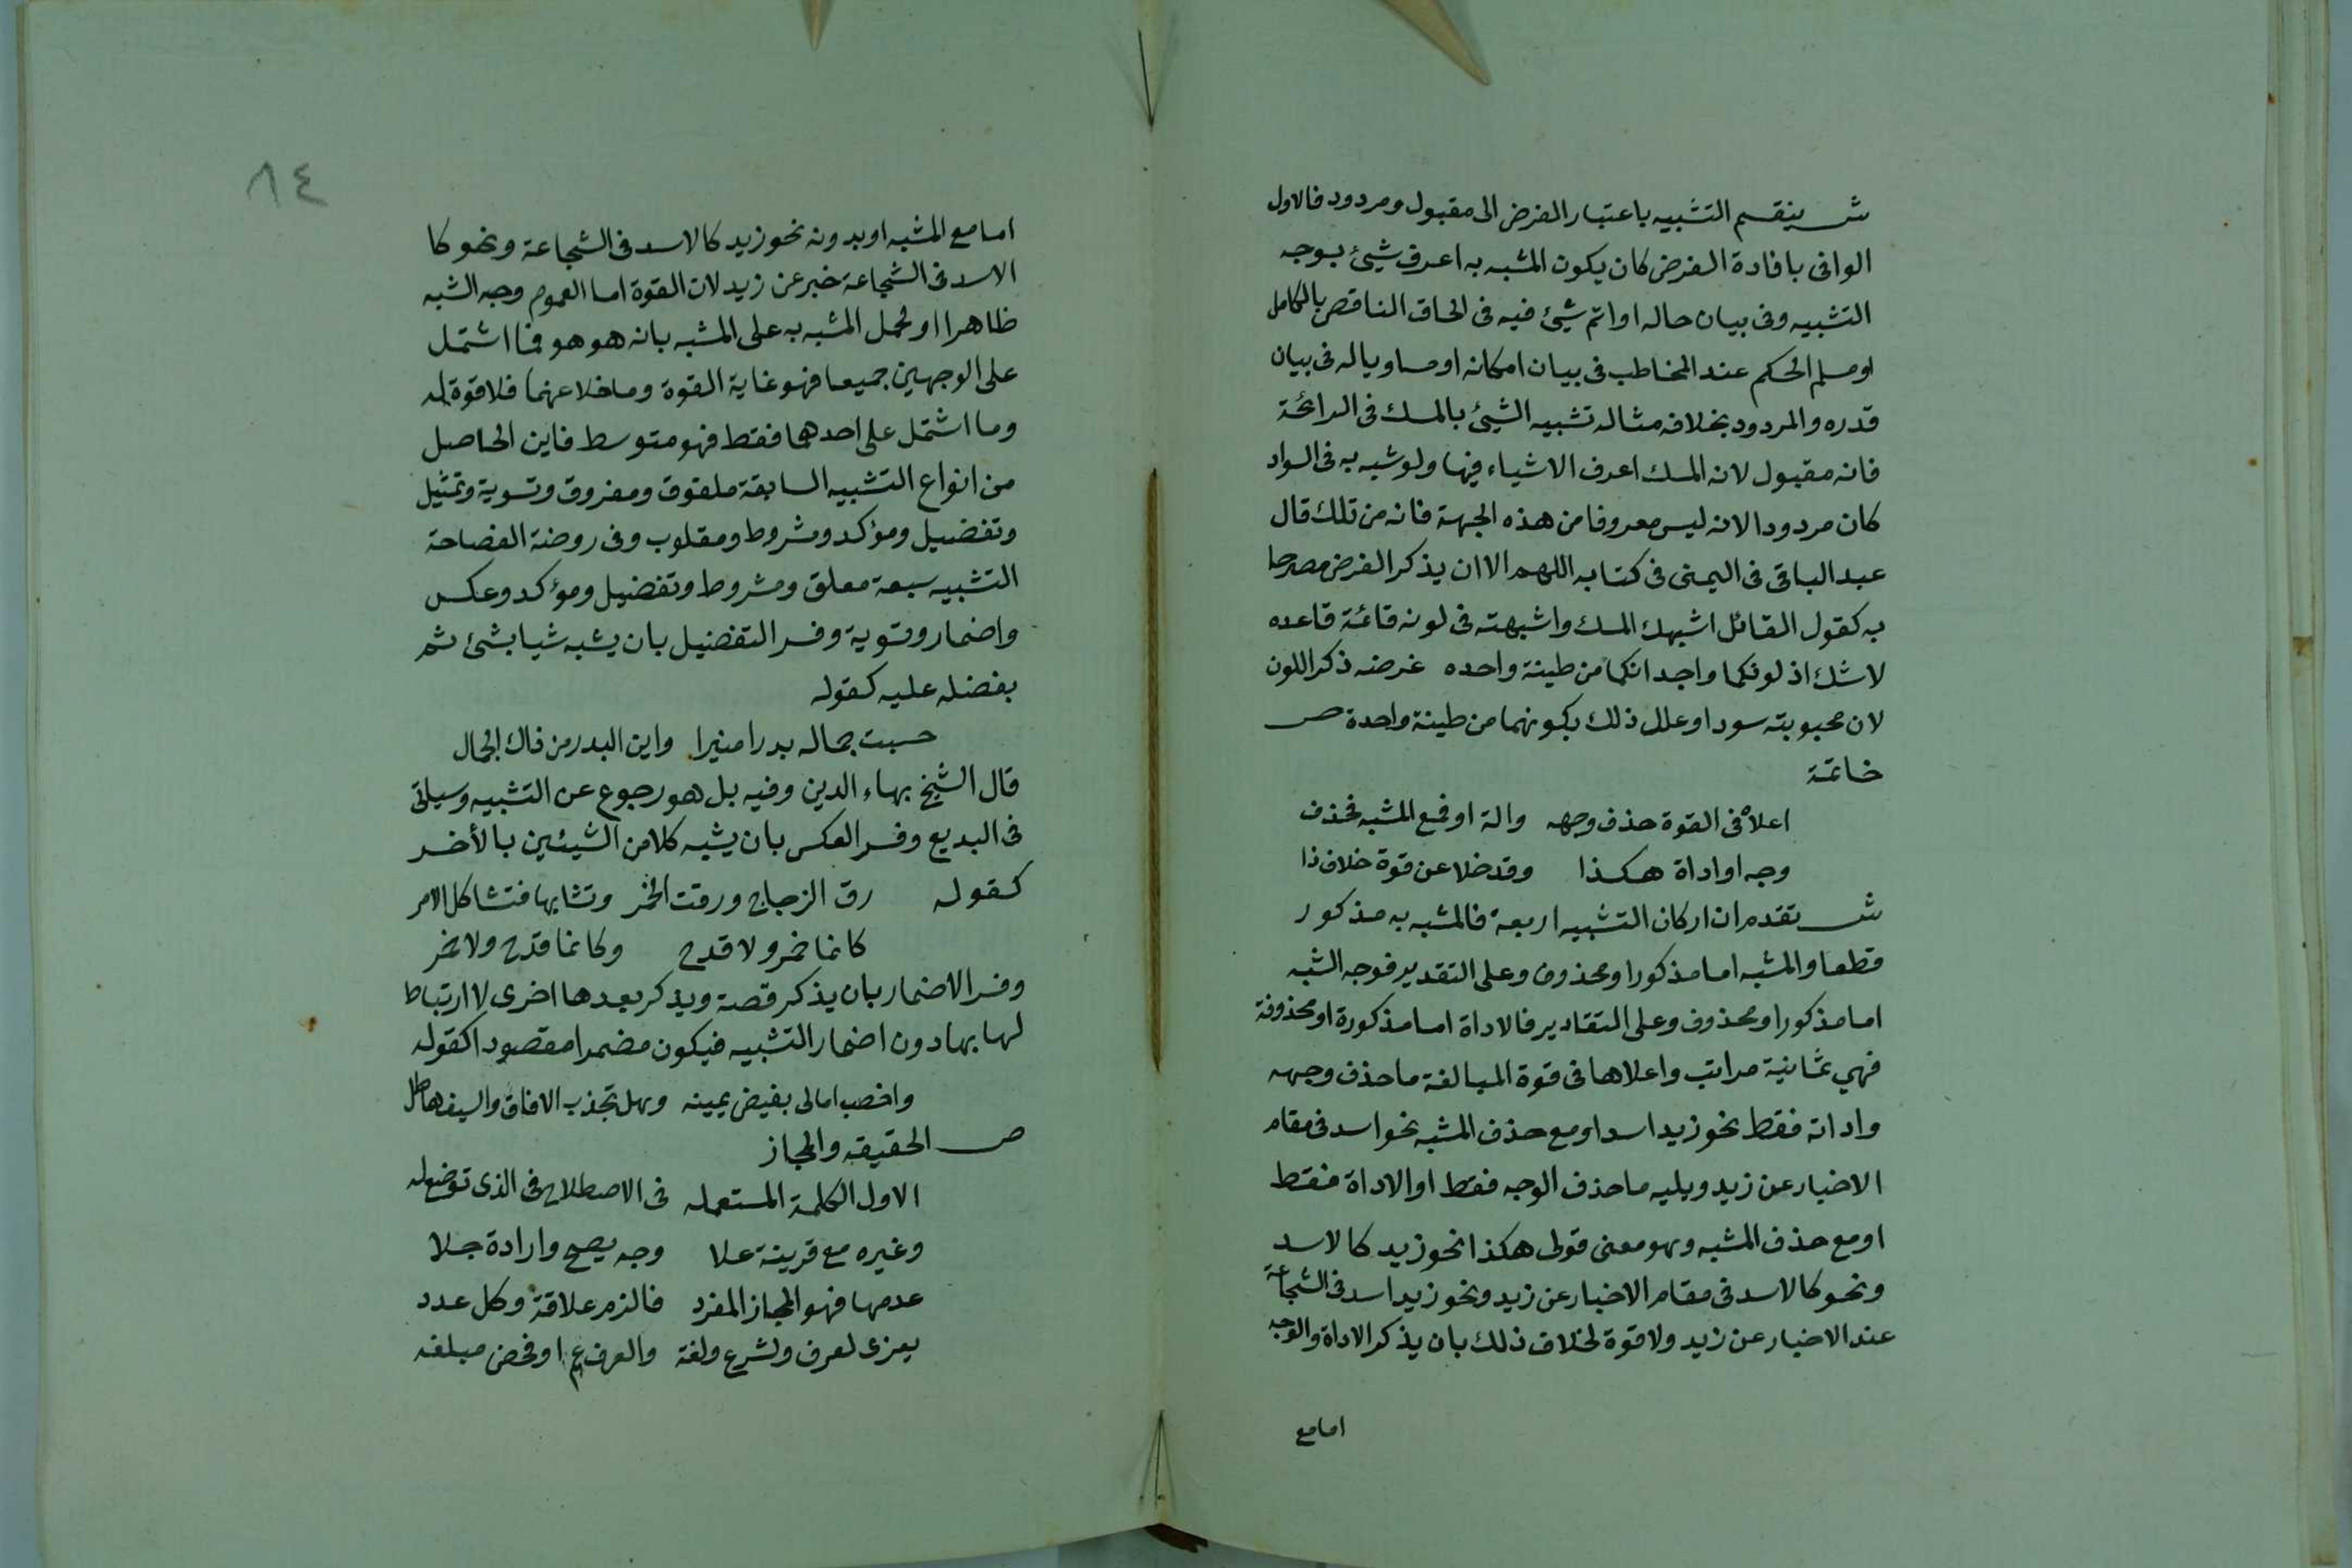 ش ينقسم التشبيه باعتبار الغرض الى مقبول ومردود فالاول
الوافى بافادة الغرض كان يكون المشبه به اعرف شيئ بوجه
التشبيه وفى بيان حاله او اتم شيئ فيه فى الحاق الناقص بالكامل
او مسلم الحكم عند المخاطب فى بيان امكانه او مساويا له فى بيان
قدره والمردود بخلافه مثاله تشبيه الشيئ بالمسك فى الرائحة
فانه مقبول لانه المسك اعرف الاشياء فيها ولو شبه به فى السواد
كان مردودا لانه ليس معروفا من هذه الجهة فانه من تلك قال
عبد الباقى فى اليمنى فى كتابه اللهم الا ان يذكر الغرض مصرحا
به كقول القائل اشبهك المسك واشبهته فى لونه قائمة قاعده
لا شك اذ لونكما واحد انكما من طينة واحده غرضه ذكر اللون
لان محبوبته سودا وعلل ذلك بكونهما من طينة واحدة ص
خاتمة
اعلاه فى القوة حذف وجهه والة او فمع المشبه فحذف
وجه او اداة هكذا وقد خلا عن قوة خلاف ذا
ش تقدم ان اركان التشبيه اربعة فالمشبه به مذكور
قطعا والمشبه اما مذكور او محذوف وعلى التقدير فوجه الشبه
اما مذكور او محذوف وعلى التقادير فالاداة اما مذكورة او محذوفة
فهي ثمانية مراتب واعلاها فى قوة المبالغة ما حذف وجهه
واداته فقط نحو زيد اسد او مع حذف المشبه نحو اسد فى مقام
الاخبار عن زيد ويليه ما حذف الوجه فقط او الاداة فقط
او مع حذف المشبه وهو معنى قولى هكذا نحو زيد كالاسد
ونحو كالاسد فى مقام الاخبار عن زيد ونحو زيد اسد فى الشجاعة
عند الاخبار عن زيد ولا قوة لخلاف ذلك بان يذكر الاداة والوجه
اما مع
٨٤
اما مع المشبه او بدونه نحو زيد كالاسد فى الشجاعة ونحو كا
الاسد فى الشجاعة خبر عن زيد لان القوة اما العموم وجه الشبه
ظاهرا او لحمل المشبه به على المشبه بانه هو هو فما اشتمل
على الوجهين جميعا فهو غاية القوة وما خلا عنهما فلا قوة له
وما اشتمل على احدهما فقط فهو متوسط فاين الحاصل
من انواع التشبيه السابقة ملفوق ومفروق وتسوية وتمثيل
وتفضيل ومؤكد ومشروط ومقلوب وفى روضة الفصاحة
التشبيه سبعة معلق ومشروط وتفضيل ومؤكد وعكس
واضمار وتسوية وفسر التفضيل بان يشبه شيا بشئ ثم
بفضله عليه كقوله
حسبت جماله بدرا منيرا واين البدر من ذاك الجمال
قال الشيخ بهاء الدين وفيه بل هو رجوع عن التشبيه وسياتى
فى البديع وفسر العكس بان يشبه كلا من الشيئين بالأخر
كقوله رق الزجاج ورقت الخمر وتشابها فتشاكل الامر
كانما خمر ولا قدح وكانما قدح ولا خمر
وفسر الاضمار بان يذكر قصة ويذكر بعدها اخرى لا ارتباط
لها بها دون اضمار التشبيه فيكون مضمرا مقصودا كقوله
واخصب امالى بفيض يمينه وهل تجدب الافاق والسيف هاطل
ص الحقيقه والمجاز
الاول الكلمة المستعمله فى الاصطلاح فى الذى توضع له
وغيره مع قرينة علا وجه يصح وارادة جلا
عدمها فهو المجاز المفرد فالزم علاقة وكل عدد
يعزى لعرف ولشرع ولغة والعرف عم او فخص مبلغه